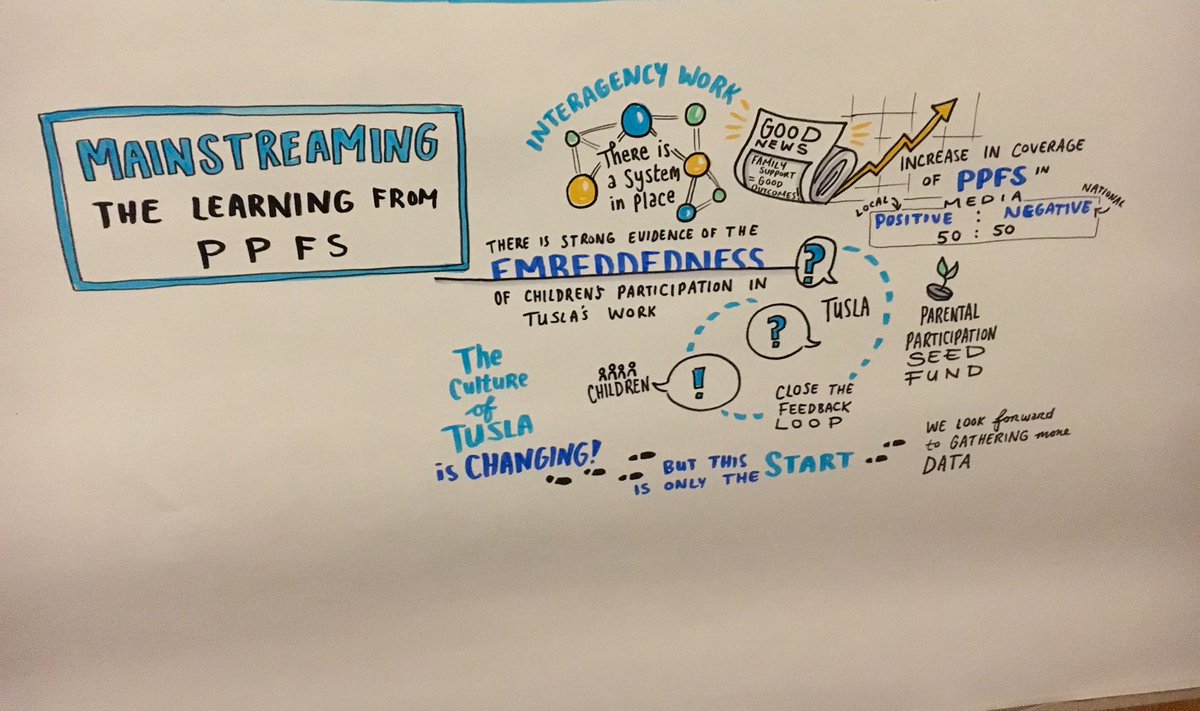 MAINSTREAMING
THE LEARNING FROM
PPFS
INTERAGENCY WORK
There is
a System
in Place
GOOD
NEWS
FAMILY
SUPPORT
= GOOD
OUTCOMES
INCREASE IN COVERAGE
OF PPFS IN
MEDIA
LOCAL
NATIONAL
POSITIVE : NEGATIVE
50 : 50
THERE IS STRONG EVIDENCE OF THE
EMBEDDEDNESS
OF CHILDREN'S PARTICIPATION IN
TUSLA'S WORK
?
TUSLA
?
CHILDREN
!
CLOSE THE
FEEDBACK
LOOP
PARENTAL
PARTICIPATION
SEED
FUND
The
Culture
of
TUSLA
is CHANGING!
BUT THIS
IS ONLY THE START
WE LOOK forward
to GATHERING more
DATA